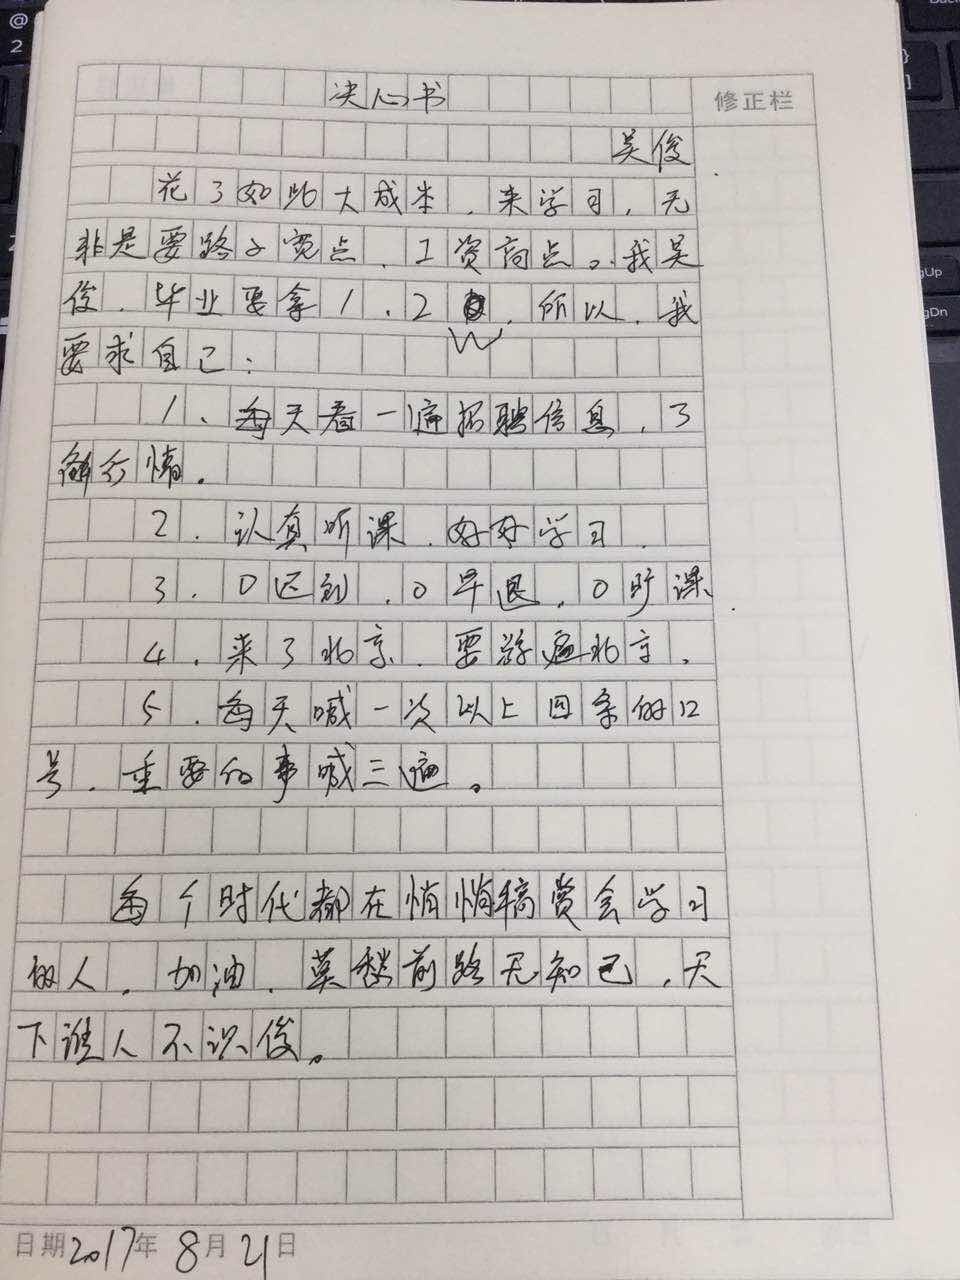 决心书
修正栏
吴俊
花了如此大成本，来学习，无
非是要路子宽点，工资高点。我吴
俊，毕业要拿1.2W，所以，我
要求自己：
1、每天看一遍招聘信息，了
解行情。
2、认真听课，好好学习，
3、0迟到，0早退，0旷课
4、来了北京，要游遍北京，
5、每天喊一次以上回条的口
号，重要的事喊三遍。
每个时代都在悄悄犒赏会学习
的人，加油，莫愁前路无知己，天
下谁人不识俊。
日期2017年8月21日